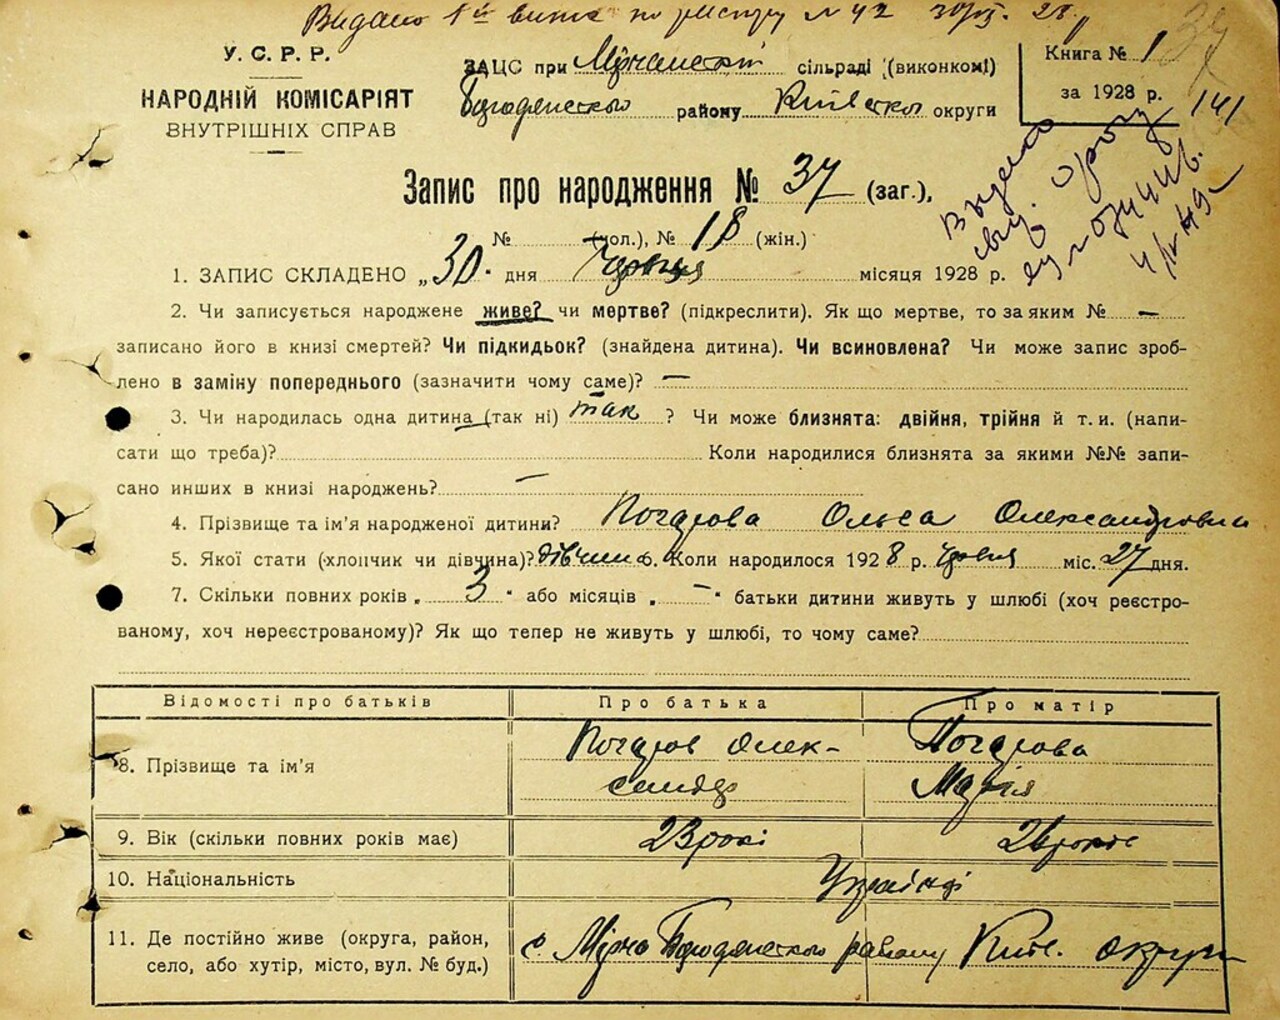 Видано 1й витяг по реєстру № 42 30/VI. 28
У. С. Р. Р.
НАРОДНІЙ КОМІСАРІЯТ
ВНУТРІШНІХ СПРАВ
ЗАЦС при сільраді (виконкомі)
району округи
Книга № 1
за 1928 р.
141
Запис про народження № 37 (заг.),
№ (чол.), № 18 (жін.)
1. ЗАПИС СКЛАДЕНО „30" дня Червня місяця 1928 р.
2. Чи записується народжене живе? чи мертве? (підкреслити). Як що мертве, то за яким № —
записано його в книзі смертей? Чи підкидьок? (знайдена дитина). Чи всиновлена? Чи може запис зроб-
лено в заміну попереднього (зазначити чому саме)? —
3. Чи народилась одна дитина (так ні) так ? Чи може близнята: двійня, трійня й т. и. (напи-
сати що треба)? Коли народилися близнята за якими №№ запи-
сано инших в книзі народжень? —
4. Прізвище та ім'я народженої дитини? Ольга Олександровна
5. Якої стати (хлопчик чи дівчина)? дівчина. Коли народилося 1928 р. червня міс. 27 дня.
7. Скільки повних років „ 3 " або місяців „ — " батьки дитини живуть у шлюбі (хоч реєстро-
ваному, хоч нереєстрованому)? Як що тепер не живуть у шлюбі, то чому саме?
Відомості про батьків Про батька Про матір
8. Прізвище та ім'я Олек-
сандр Марія
9. Вік (скільки повних років має) 23 роки
10. Національність Українці
11. Де постійно живе (округа, район,
село, або хутір, місто, вул. № буд.) с. району Київ. округи